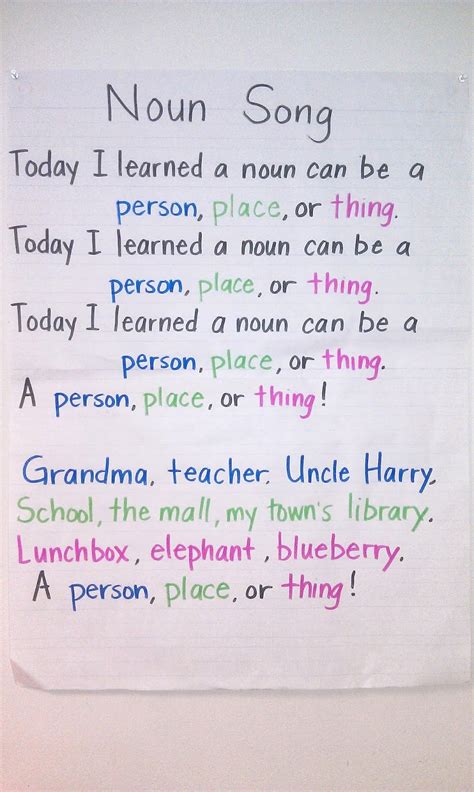 Noun Song
Today I learned a noun can be a
person, place, or thing.
Today I learned a noun can be a
person, place, or thing.
Today I learned a noun can be a
person, place, or thing.
A person, place, or thing!
Grandma, teacher. Uncle Harry.
School, the mall, my town's library.
Lunchbox, elephant, blueberry.
A person, place, or thing!